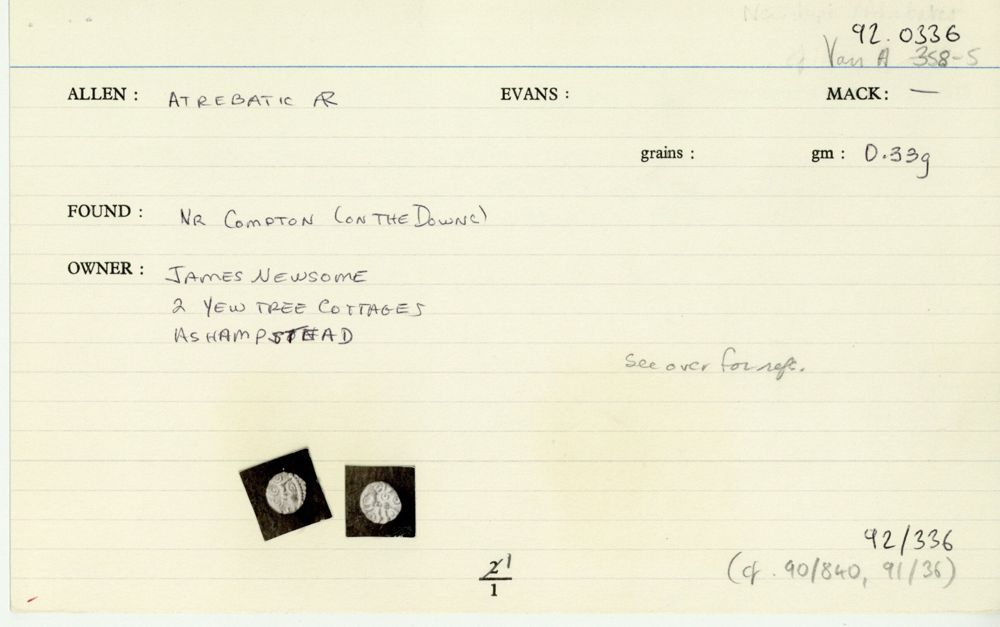 92.0336
cf Van A 358-5
ALLEN : ATREBATIC AR EVANS : MACK: —
grains : gm : 0.33g
FOUND : NR COMPTON (ON THE DOWNS)
OWNER : JAMES NEWSOME
2 YEW TREE COTTAGES
ASHAMPSTEAD
See over for refs.
92/336
(cf. 90/840, 91/36)
21
1